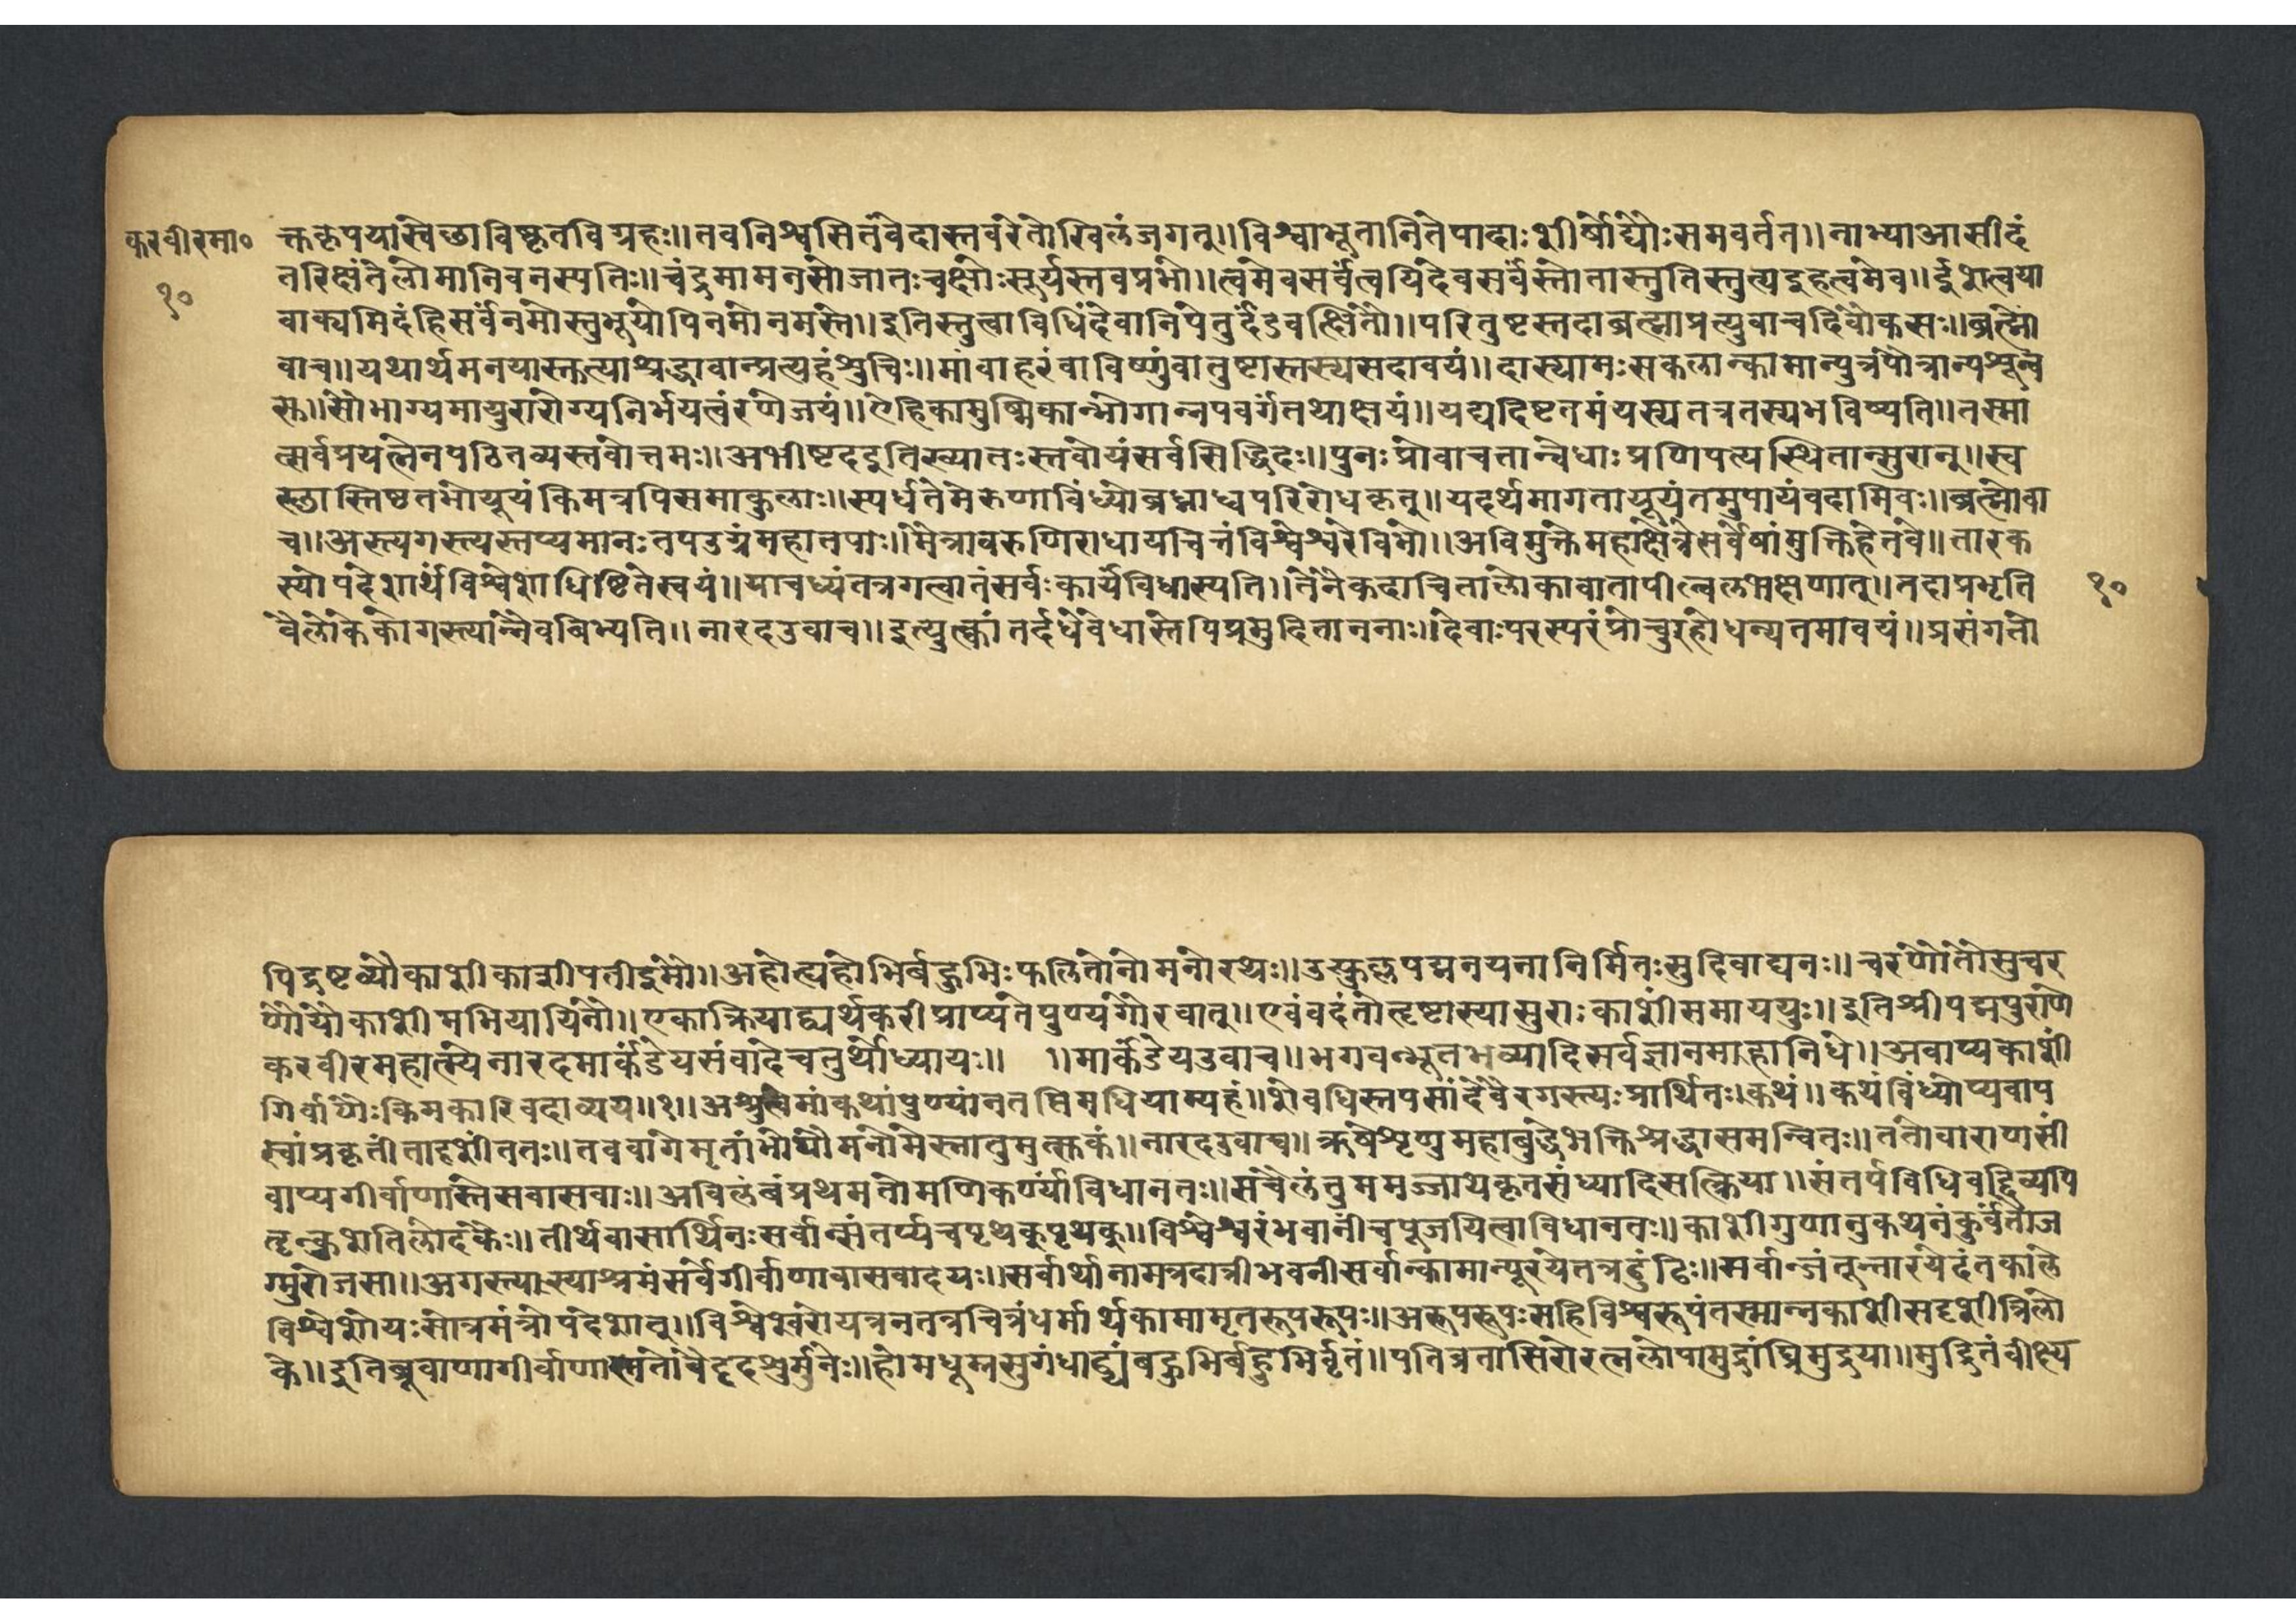 करवीरमा०
१०
क्तकृपयास्वेछाविष्कृतविग्रहः॥तवनिश्वसितंवेदास्तवरेतोखिलंजगत्॥विश्वाभूतानितेपादाःशीर्षोद्यौःसमवर्तत॥नाभ्याआसीदं
तरिक्षंतेलोमानिवनस्पतिः॥चंद्रमामनसोजातःचक्षोःसूर्यस्तवप्रभो॥त्वमेवसर्वंत्वयिदेवसर्वंस्तोतास्तुतिस्तुत्यइहत्वमेव॥ईशत्वया
वाक्यमिदंहिसर्वंनमोस्तुभूयोपिनमोनमस्ते॥इतिस्तुत्वाविधिंदेवानिपेतुर्दंडवत्क्षितौ॥परितुष्टस्तदाब्रह्माप्रत्युवाचदिवौकसः॥ब्रह्मो
वाच॥यथार्थमनयास्तुत्याश्रद्धावान्प्रत्यहंशुचिः॥मांवाहरंवाविष्णुंवातुष्टास्तस्यसदावयं॥दास्यामःसकलान्कामान्पुत्रंपौत्रान्पशून्व
सू॥सौभाग्यमायुरारोग्यनिर्भयत्वंरणेजयं॥ऐहिकामुष्मिकान्भोगान्नपवर्गंतथाक्षयं॥यद्यदिष्टतमंयस्यतत्रतस्यभविष्यति॥तस्मा
त्सर्वप्रयत्नेनपठितव्यस्तवोत्तमः॥अभीष्टदइतिख्यातःस्तवोयंसर्वसिद्धिदः॥पुनःप्रोवाचतान्वेधाःप्रणिपत्यस्थितान्सुरान्॥स्व
स्छास्तिष्ठतभोयूयंकिमत्रपिसमाकुलाः॥स्पर्धतेमेरुणाविंध्योब्रध्नाध्वपरिरोधकृत्॥यदर्थमागतायूयंतमुपायंवदामिवः॥ब्रह्मोवा
च॥अस्त्यगस्त्यस्तप्यमानःतपउग्रंमहातपाः॥मैत्रावरुणिराधायचित्तंविश्वेश्वरेविभो॥अविमुक्तेमहाक्षेत्रेसर्वेषांमुक्तिहेतवे॥तारक
स्योपदेशार्थंविश्वेशाधिष्टितेस्वयं॥याचध्यंतत्रगत्वातंसर्वःकार्यंविधास्यति॥तेनैकदाचितालोकावातापील्वलभक्षणात्॥तदाप्रभृति १०
त्रैलोकेकोगस्त्यान्नैवबिभ्यति॥नारदउवाच॥इत्युत्कांतर्दधेवेधास्तेपिप्रमुदिताननाः॥देवाःपरस्परंप्रोचुरहोधन्यतमावयं॥प्रसंगतो
पिद्रष्टव्यौकाशीकाशीपतीइमौ॥अहोत्यहोभिर्बहुभिःफलितोनोमनोरथः॥उत्फुल्लपद्मनयनानिर्मितःसुदिवाद्यनः॥चरणौतौसुचर
णौयौकाशीमभियायिनौ॥एकाक्रियाद्व्यर्थकरीप्राप्यतेपुण्यगौरवात्॥एवंवदंतोत्दृष्टास्यासुराःकाशींसमाययुः॥इतिश्रीपद्मपुराणे
करवीरमहात्म्येनारदमार्कंडेयसंवादेचतुर्थोध्यायः॥ १॥मार्कंडेयउवाच॥भगवन्भूतभव्यादिसर्वज्ञानमाहानिधे॥अवाप्यकाशीं
गिर्वाणैःकिमकारिवदाव्यय॥१॥अश्रुत्वेमांकथांपुण्यांनतप्तिमधियाम्यहं॥शेवधिस्तपसांदेवैरगस्त्यःप्रार्थितःकथं॥कथंविंध्योप्यवाप
स्वांप्रकृतींतादृशींततः॥तववागेमृतांभोधौमनोमेस्नातुमुत्सकं॥नारदउवाच॥ऋषेशृणुमहाबुद्धेभक्तिश्रद्धासमन्वितः॥ततोवाराणसीं
वाप्यगीर्वाणास्तेसवासवाः॥अविलंबंप्रथमतोमणिकर्ण्यांविधानतः॥सचैलंतुममज्जायेकृतसंध्यादिसत्क्रिया॥संतर्पविधिवद्दिव्यपि
तॄन्कुशतिलोदकैः॥तीर्थवासार्थिनःसर्वान्संतर्प्यचपृथक्पृथक्॥विश्वेश्वरंभवानींचपूजयित्वाविधानतः॥काशीगुणानुकथनंकुर्वंतोज
ग्मुरोजसा॥अगस्त्यास्याश्रमंसर्वेगीर्वाणावासवादयः॥सर्वार्थानामत्रदात्रीभवनीसर्वान्कामान्पूरयेतत्रढुंढिः॥सर्वान्जंतून्तारयेदंतकाले
विश्वेशोयःसोत्रमंत्रोपदेशात्॥विश्वेश्वरोयत्रनतत्रचित्रंधर्मार्थकामामृतरूपरूपः॥अरूपरूपःसहिविश्वरूपंतस्मान्नकाशीसदृशीत्रिलो
के॥इतिब्रूवाणागीर्वाणास्ततोवैददृशुर्मुनेः॥होमधूम्रसुगंधाढ्यंबहुभिर्बहुभिर्वृतं॥पतिव्रतासिरोरत्नलोपामुद्रांघ्रिमुद्रया॥मुद्रितंवीक्ष्य